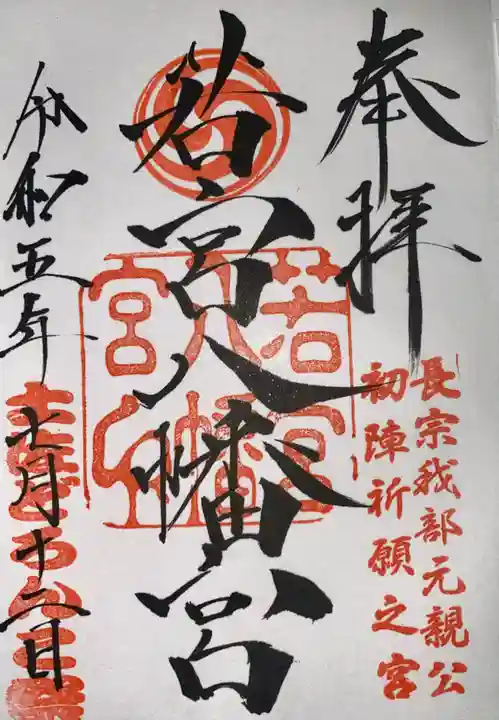 奉拝
長宗我部元親公
初陣祈願之宮
若宮八幡宮
若宮
八幡
宮
令和五年
七月十六日